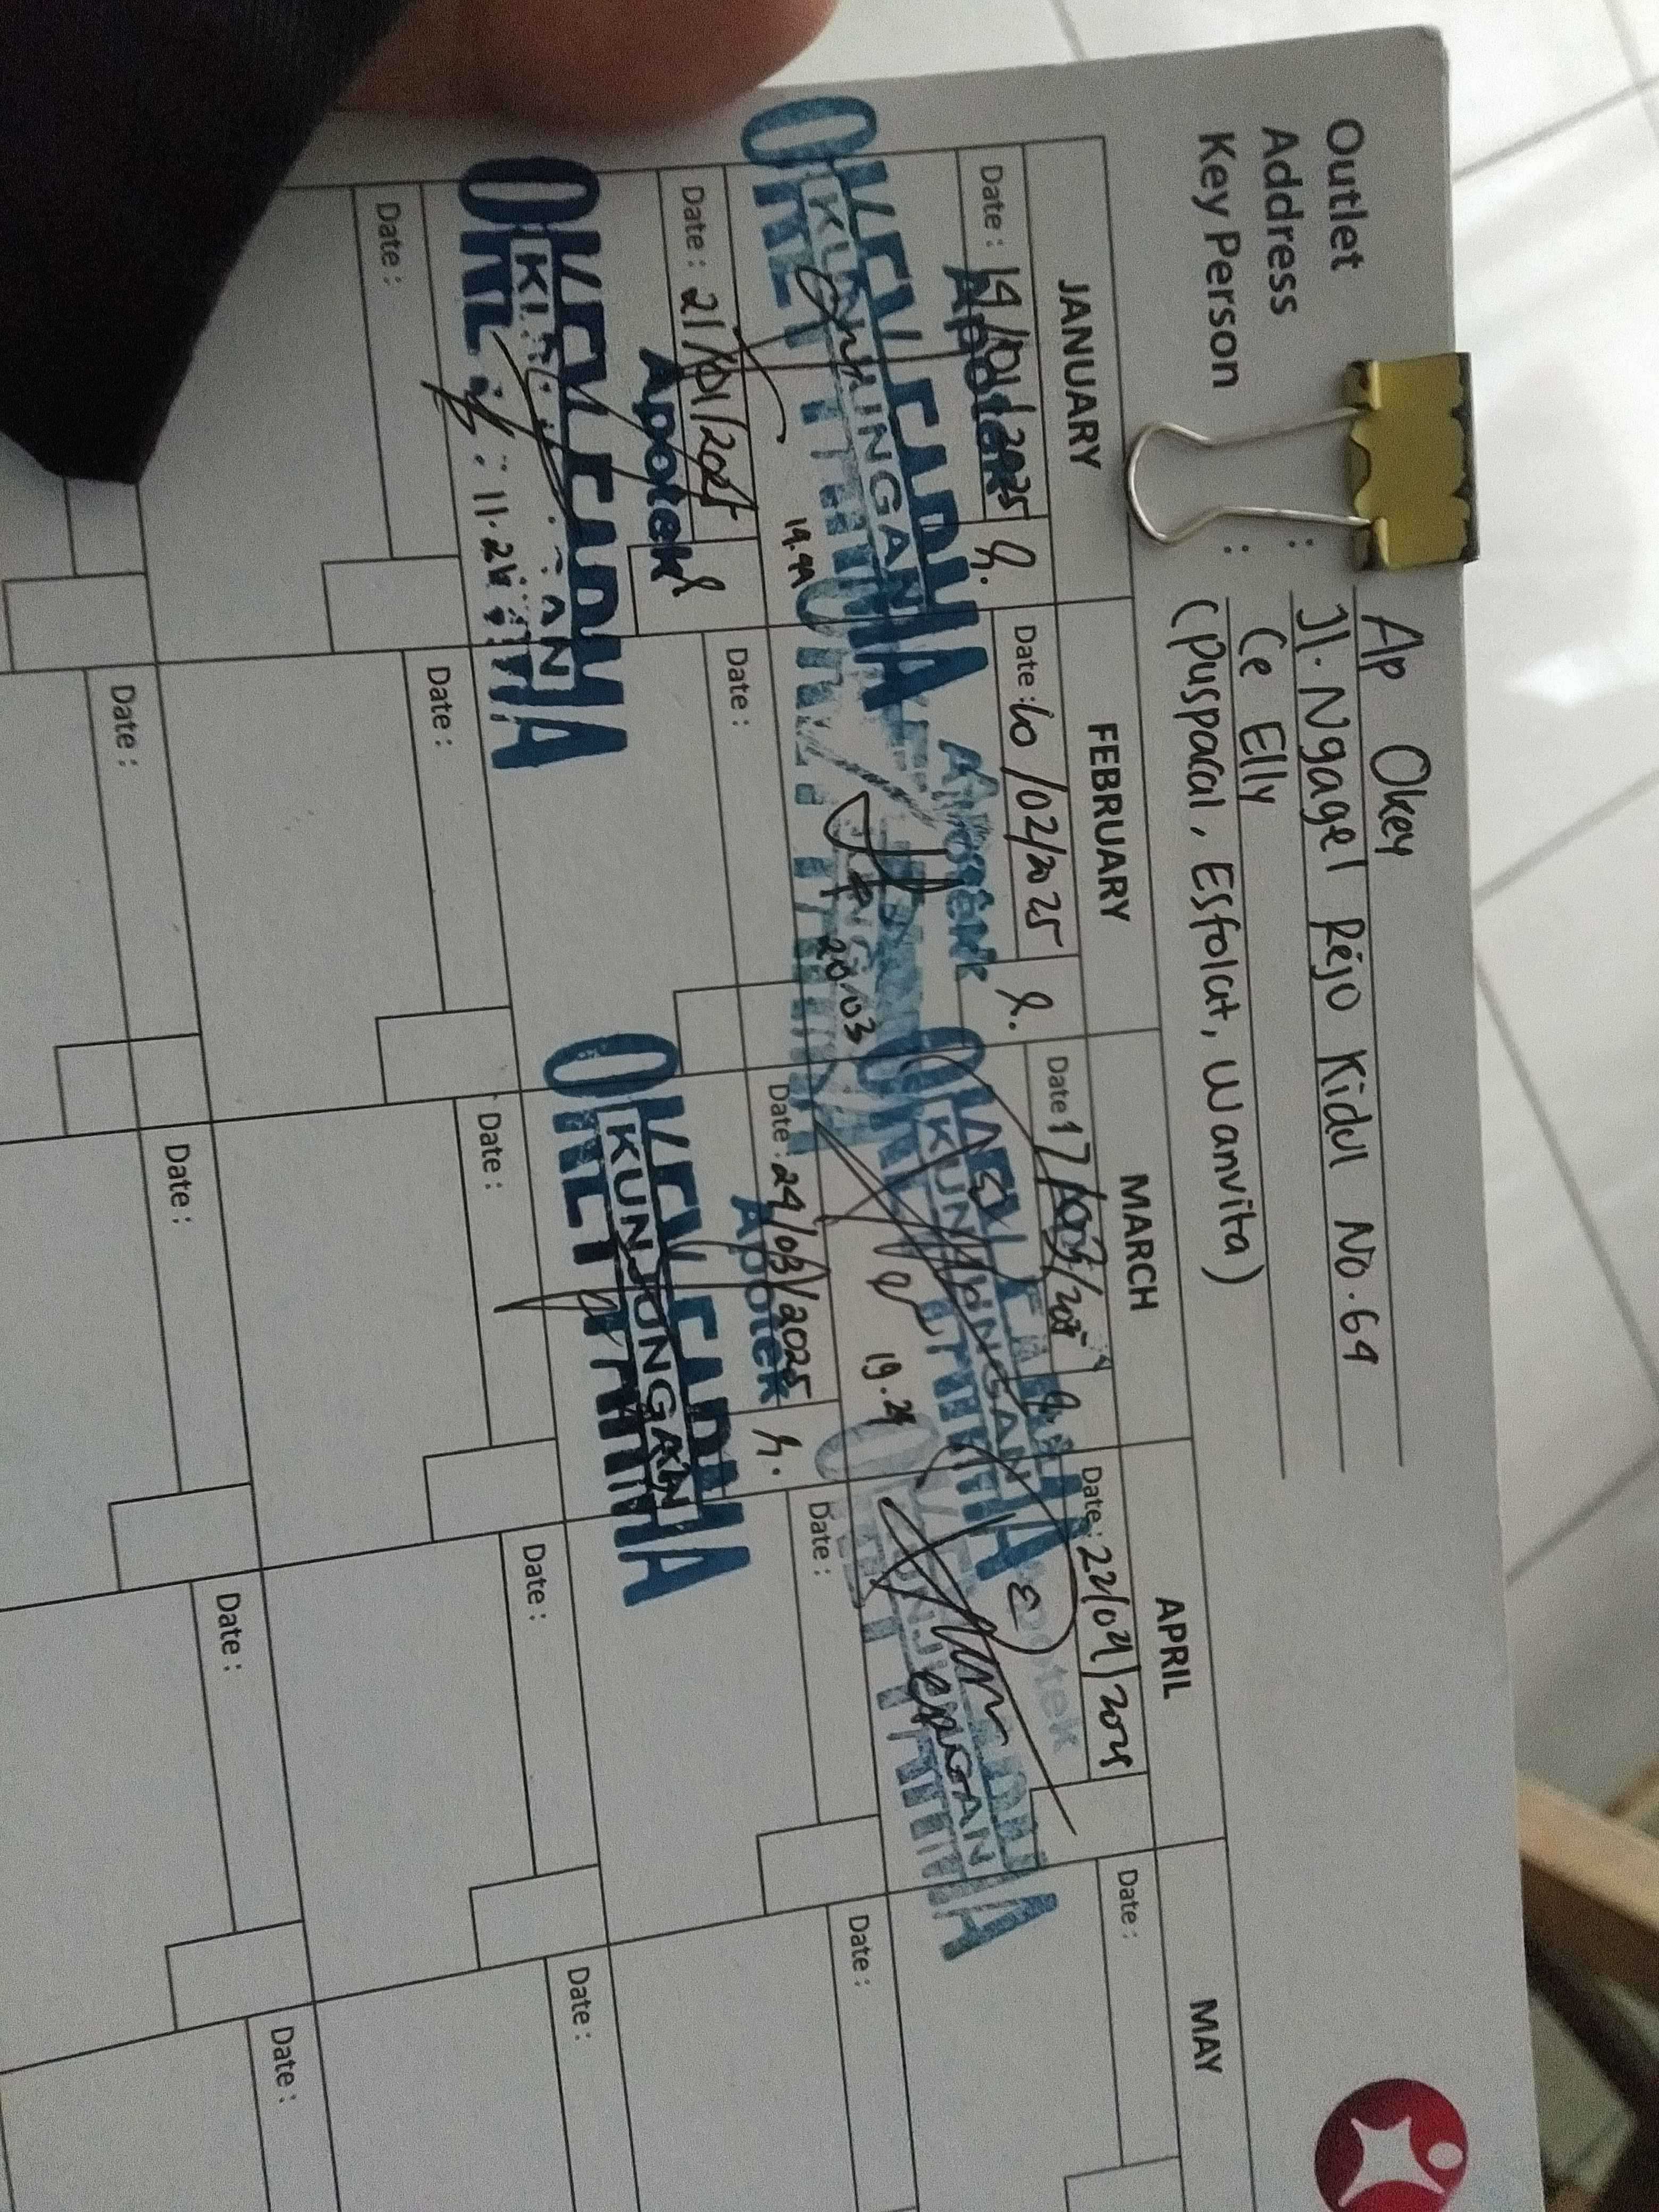 Outlet : Ap Okey
Address : Jl. Ngagel Rejo Kidul No. 64
Key Person : Ce Elly
(Puspacal, Esfolat, Wanvita)
JANUARY FEBRUARY MARCH APRIL MAY
Date : 14/01/2025 Date : 10/02/2025 Date 17/03/2025 Date : 22/04/2025 Date :
Apotek Apotek Apotek
OKEY FARMA OKEY FARMA OKEY FARMA
KUNJUNGAN KUNJUNGAN KUNJUNGAN
19.44 20.03 19.24
Date : 21/01/2025 Date : Date : 24/03/2025 Date : Date :
Apotek Apotek
OKEY FARMA OKEY FARMA
KUNJUNGAN KUNJUNGAN
11.24
Date : Date : Date : Date : Date :
Date : Date : Date : Date :